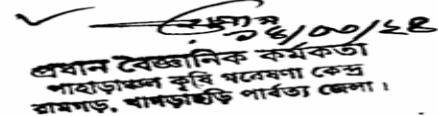 ১৫/০০/২৪
প্রধান বৈজ্ঞানিক কর্মকর্তা
পাহাড়াঞ্চল কৃষি গবেষণা কেন্দ্র
রামগড়, খাগড়াছড়ি পার্বত্য জেলা।